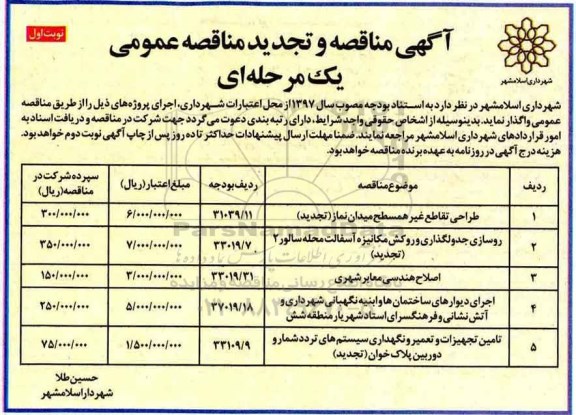 نوبت اول
شهرداری اسلامشهر
آگهی مناقصه و تجدید مناقصه عمومی
یک مرحله‌ای
شهرداری اسلامشهر در نظر دارد به استناد بودجه مصوب سال ۱۳۹۷ از محل اعتبارات شهرداری، اجرای پروژه‌های ذیل را از طریق مناقصه
عمومی واگذار نماید. بدینوسیله از اشخاص حقوقی واجد شرایط، دارای رتبه بندی دعوت می‌گردد جهت شرکت در مناقصه و دریافت اسناد به
امور قراردادهای شهرداری اسلامشهر مراجعه نمایند. ضمنا مهلت ارسال پیشنهادات حداکثر تا ده روز پس از چاپ آگهی نوبت دوم خواهد بود.
هزینه درج آگهی در روزنامه به عهده برنده مناقصه خواهد بود.
ردیف موضوع مناقصه ردیف بودجه مبلغ اعتبار (ریال) سپرده شرکت در مناقصه (ریال)
۱ طراحی تقاطع غیر همسطح میدان نماز (تجدید) ۳۱۰۳۹/۱۱ ۶/۰۰۰/۰۰۰/۰۰۰ ۳۰۰/۰۰۰/۰۰۰
۲ روسازی جدولگذاری و روکش مکانیزه آسفالت محله سالور ۲ (تجدید) ۳۳۰۱۹/۷ ۷/۰۰۰/۰۰۰/۰۰۰ ۳۵۰/۰۰۰/۰۰۰
۳ اصلاح هندسی معابر شهری ۳۳۰۱۹/۳۱ ۳/۰۰۰/۰۰۰/۰۰۰ ۱۵۰/۰۰۰/۰۰۰
۴ اجرای دیوارهای ساختمان‌ها و ابنیه نگهبانی شهرداری و آتش نشانی و فرهنگسرای استاد شهریار منطقه شش ۳۷۰۱۹/۱۸ ۵/۰۰۰/۰۰۰/۰۰۰ ۲۵۰/۰۰۰/۰۰۰
۵ تامین تجهیزات و تعمیر و نگهداری سیستم‌های تردد شمار و دوربین پلاک خوان (تجدید) ۳۳۱۰۹/۹ ۱/۵۰۰/۰۰۰/۰۰۰ ۷۵/۰۰۰/۰۰۰
حسین طلا
شهردار اسلامشهر
ParsNamadData